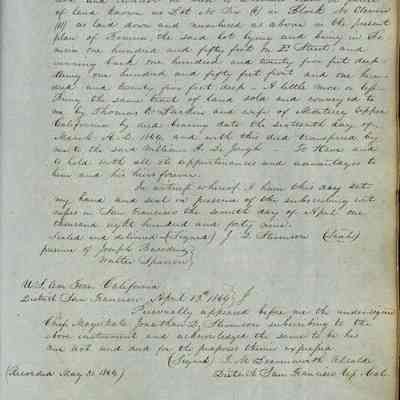 of land known as Lot No.
as laid down and numbered as above in the present
plan of Benicia, the said lot lying and being in the
one hundred and fifty feet on E Street, and
running back one hundred and twenty five feet deep
being one hundred and fifty feet front and one hun
dred and twenty five feet deep. A little more or less
Being the same tract of land sold and conveyed to
me by Thomas O. Larkin and wife of Monterey Upper
California by deed bearing date the sixteenth day of
March A.D. 1849 and with this deed transferred by
me to the said William A. To Have and
to hold with all its appurtenances and advantages to
him and his heirs forever.
In witness whereof I have this day set
my hand and seal in presence of the subscribing wit
nesses in San Francisco the day of April one
thousand eight hundred and forty nine.
Sealed and delivered in (Signed) J. D. Stevenson (Seal)
presence of Joseph
Walter
California
District San Francisco, April 13th 1849
Personally appeared before me the undersigned
Chief Magistrate Jonathan D. Stevenson subscribing to the
above instrument and acknowledged the same to be his
act and deed for the purposes therein expressed
(Signed) T. M. Leavenworth Alcalde
(Recorded May 31 1849) Dist. of San Francisco Up. Cal.